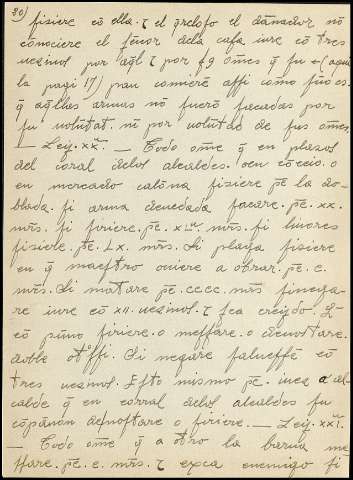 20) fisiere cõ ella. ⁊ el q̃relofo el dañador nõ
conociere el señor dela casa iure cõ tres
uesinos por aq̃l ⁊ por sõ omes q̃ fu e (aqui
la pagi 17) pan comierẽ assi como suso es.
q̃ aq̃llas armas nõ fuerõ pecadas por
su uolũtat. nĩ por uolũtad de sus omẽs.
— Ley. xx. — Todo omẽ q̃ en plazos
del coral delos alcaldes. o en cõceio. o
en mercado calõna fisiere pẽ la do-
blada. si arma deuedada sacare. pẽ. xx.
mrs. si firiere. pẽ. xLᵃ mrs. si liuores
fisiere. pẽ. Lx. mrs. Si plaga fisiere
en q̃ maestro ouiere a obrar. pẽ. c.
mrs. Si matare pẽ. cccc. mrs si nega-
re iure cõ xii. uesinos. ⁊ sea creydo.
cõ pũno firiere. o messare. o denostare.
doble otossi. Si negare saluesse cõ
tres uesinos. Esto mismo pẽ. al al-
calde q̃ en corral delos alcaldes su
cõpãnon denostare o firiere. — Ley. xxi.
— Todo omẽ q̃ a otro la barua me-
ssare. pẽ. c. mrs. ⁊ exca enemigo si